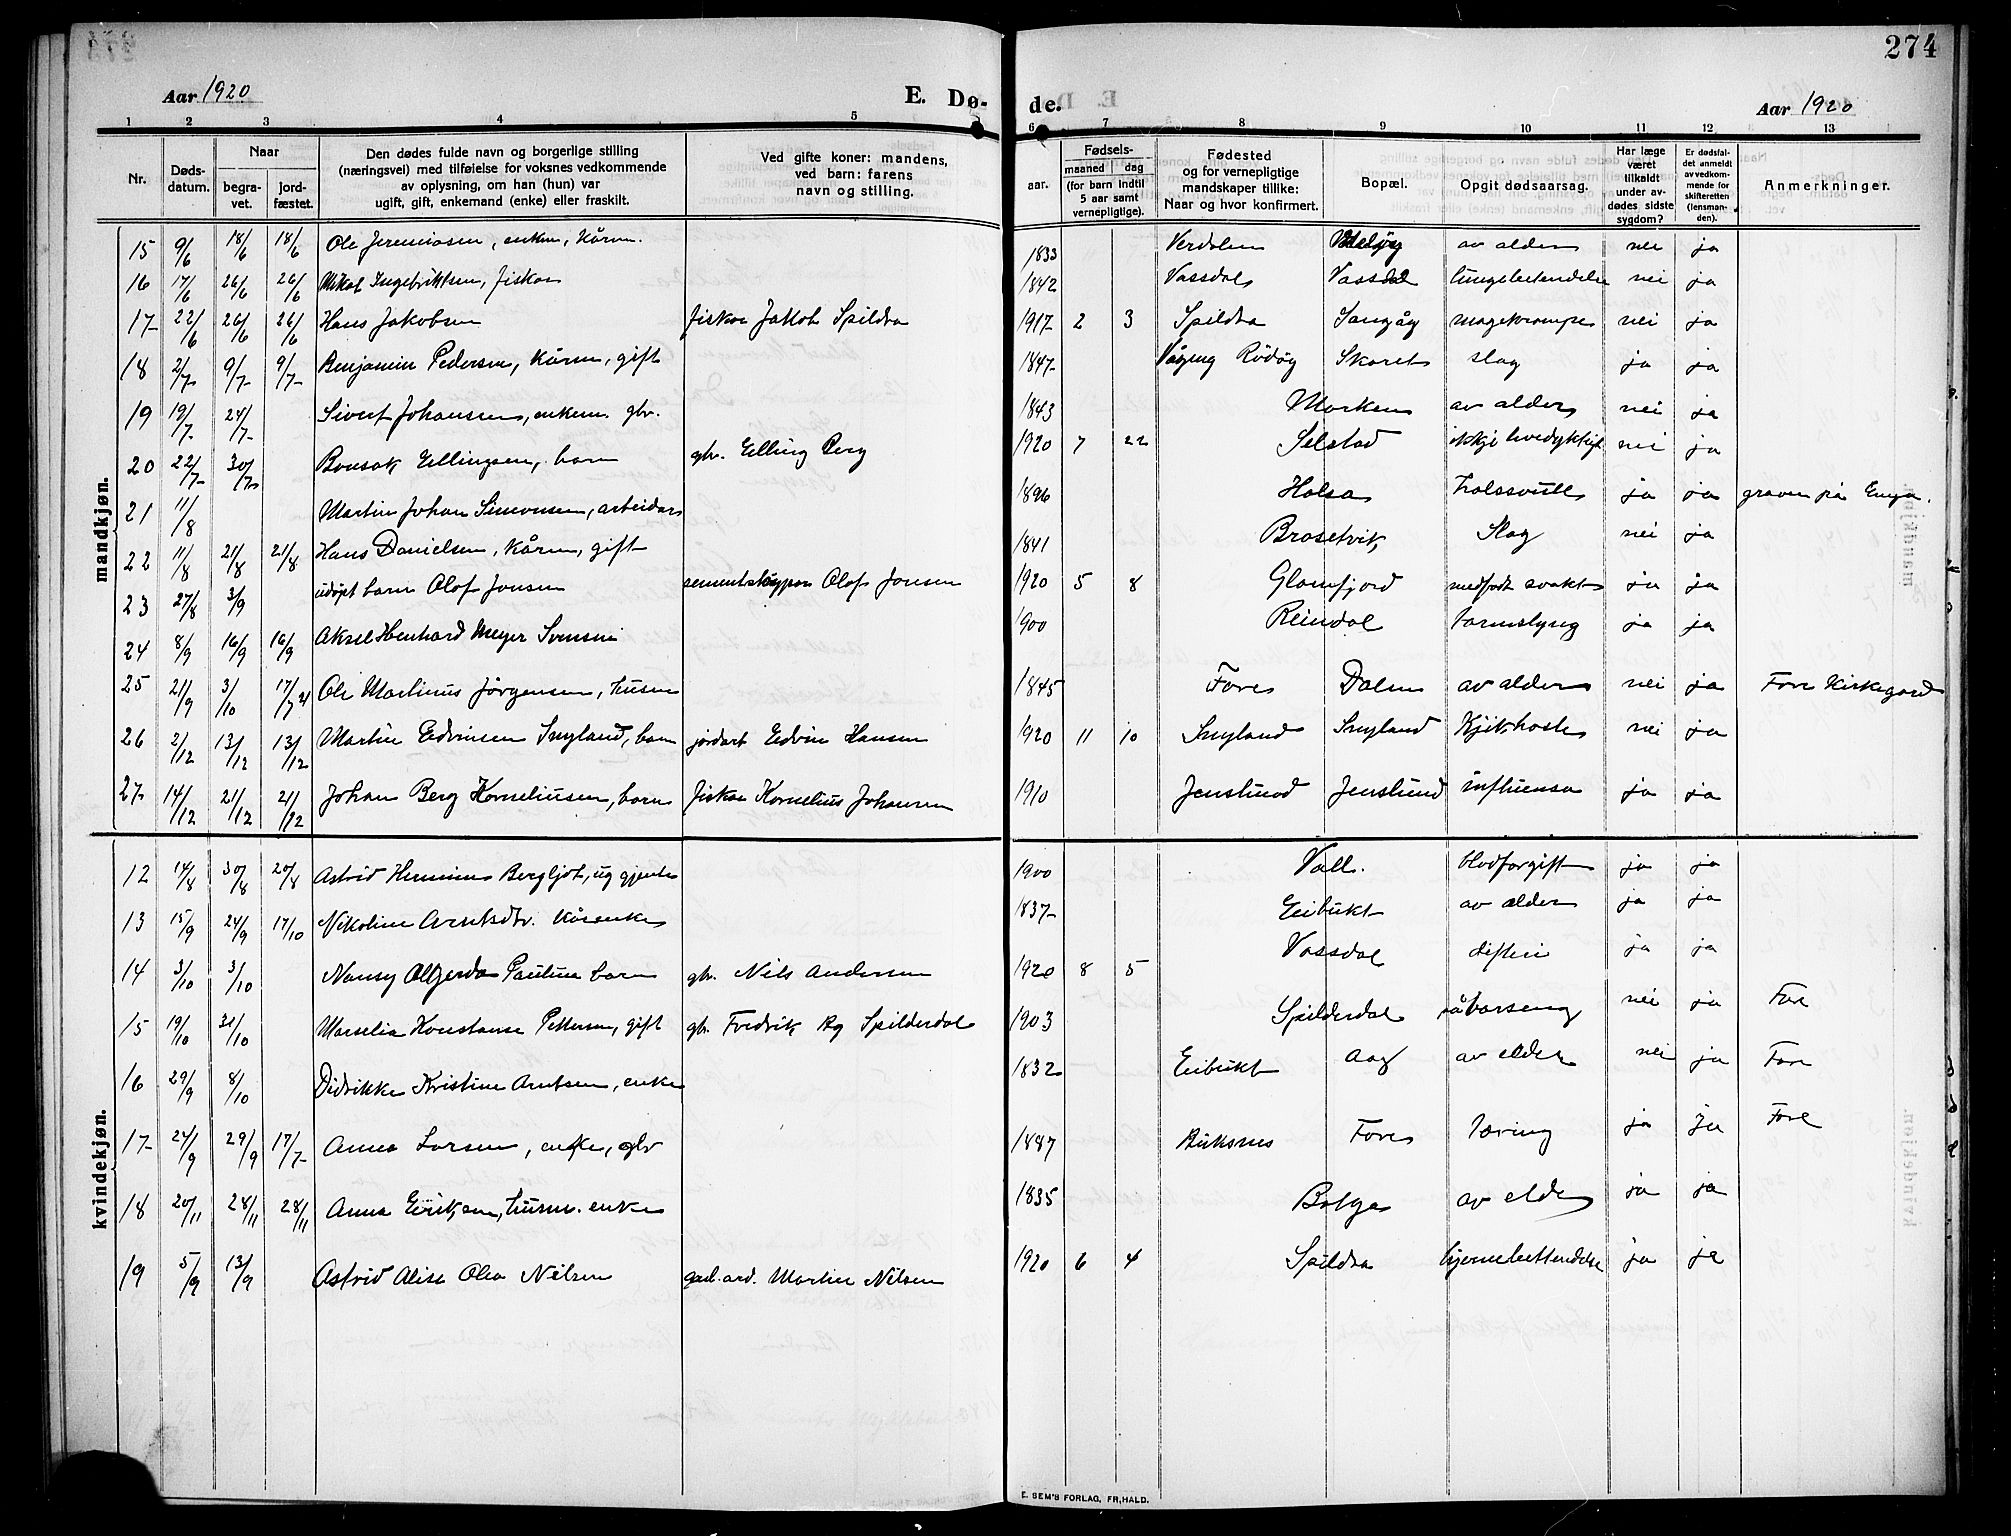 274
Aar 1920 E. Dø- de. Aar 1920
1 2 3 4 5 6 7 8 9 10 11 12 13
Nr.
Døds-datum.
Naar
begra-vet.
jord-fæstet.
Den dødes fulde navn og borgerlige stilling
(næringsvei) med tilføielse for voksnes vedkommende
av oplysning, om han (hun) var
ugift, gift, enkemand (enke) eller fraskilt.
Ved gifte koner: mandens,
ved barn: farens
navn og stilling.
aar.
Fødsels-
maaned dag
(for barn indtil
5 aar samt
vernepligtige).
Fødested
og for vernepligtige
mandskaper tillike:
Naar og hvor konfirmert.
Bopæl.
Opgit dødsaarsag.
Har læge
været
tilkaldt
under av-
dødes sidste
sygdom?
Er dødsfal-
det anmeldt
av vedkom-
mende for
skifteretten
(lensman-
den).
Anmerkninger.
mandkjøn.
15 9/6 18/6 18/6 Ole Jeremiasen, enkm, Kårm. 1833 Verdalen av alder nei ja
16 17/6 26/6 26/6 Mikal Ingebriktsen, fiskar 1842 Vassdal Vassdal lungebetendelse nei ja
17 22/6 26/6 26/6 Hans Jakobsen fiskar Jakob Spildra 1917 2 3 Spildra Sangåg magekrampe nei ja
18 2/7 9/7 9/7 Benjamin Pedersen, Kårm, gift 1847 Vågeng Rödöy Skaret slag ja ja
19 19/7 24/7 Sivert Johanssen, enkem. gbr. 1843 Marken av alder nei ja
20 22/7 30/7 Bonsak Ellingsen, barn gbr. Elling Berg 1920 7 22 Selstad ikkje livedyktigt nei ja
21 11/8 Martin Johan Simonsen, arbeidar 1896 Halsa halssvull ja ja graven på Enga.
22 11/8 21/8 21/8 Hans Danielsen, Kårm, gift 1841 Brasetvik Slag nei ja
23 27/8 3/9 udøpt barn Olof Jonsen sementstøyper Olof Jonsen 1920 5 8 Glomfjord medfødt svakt ja ja
24 8/9 16/9 16/9 Aksel Henhard Meyer Svensen 1900 Reindal tarmslyng ja ja
25 21/9 3/10 17/7 21 Ole Martinus Jørgensen, husm 1845 Fore Dalen av alder nei ja Fore Kirkegard
26 2/12 13/12 13/12 Martin Edvinsen Snyland, barn jordarb Edvin Hansen 1920 11 10 Snyland Snyland Kjikhoste nei ja
27 14/12 21/12 21/12 Johan Berg Korneliusen, barn fiskar Kornelius Johansen 1910 Jenslund Jenslund influensa ja ja
kvindekjøn.
12 14/8 30/8 20/8 Astrid Hermine Bergljot, ug gjente 1900 Vall. blodforgift ja ja
13 15/9 24/9 17/10 Nikoline Arntsdtr. kårenke 1837 Eibukt av alder ja ja
14 3/10 3/10 Nansy Algerda Pauline barn gbr. Nils Andersen 1920 8 5 Vassdal difteri ja ja
15 19/10 31/10 Marselia Konstanse Pettersen, gift gbr. Fredrik Ag Spilderdal 1903 Spilderdal på barseng nei ja Fore
16 29/9 8/10 Didrikke Kristine Arntsen, enke 1832 Eibukt Aag av elder nei ja Fore
17 24/9 29/9 17/7 Anna Larsen, enke, gbr 1887 Buksnes Fore tæring ja ja Fore
18 20/11 28/11 28/11 Anna Eriksen, husm. enke 1835 Bolga av elde ja ja
19 5/9 13/9 Astrid Alise Olea Nilsen gard.arb. Martin Nilsen 1920 6 4 Spildra hjernebettendelse ja ja
E. SEM'S FORLAG, FR,HALD.